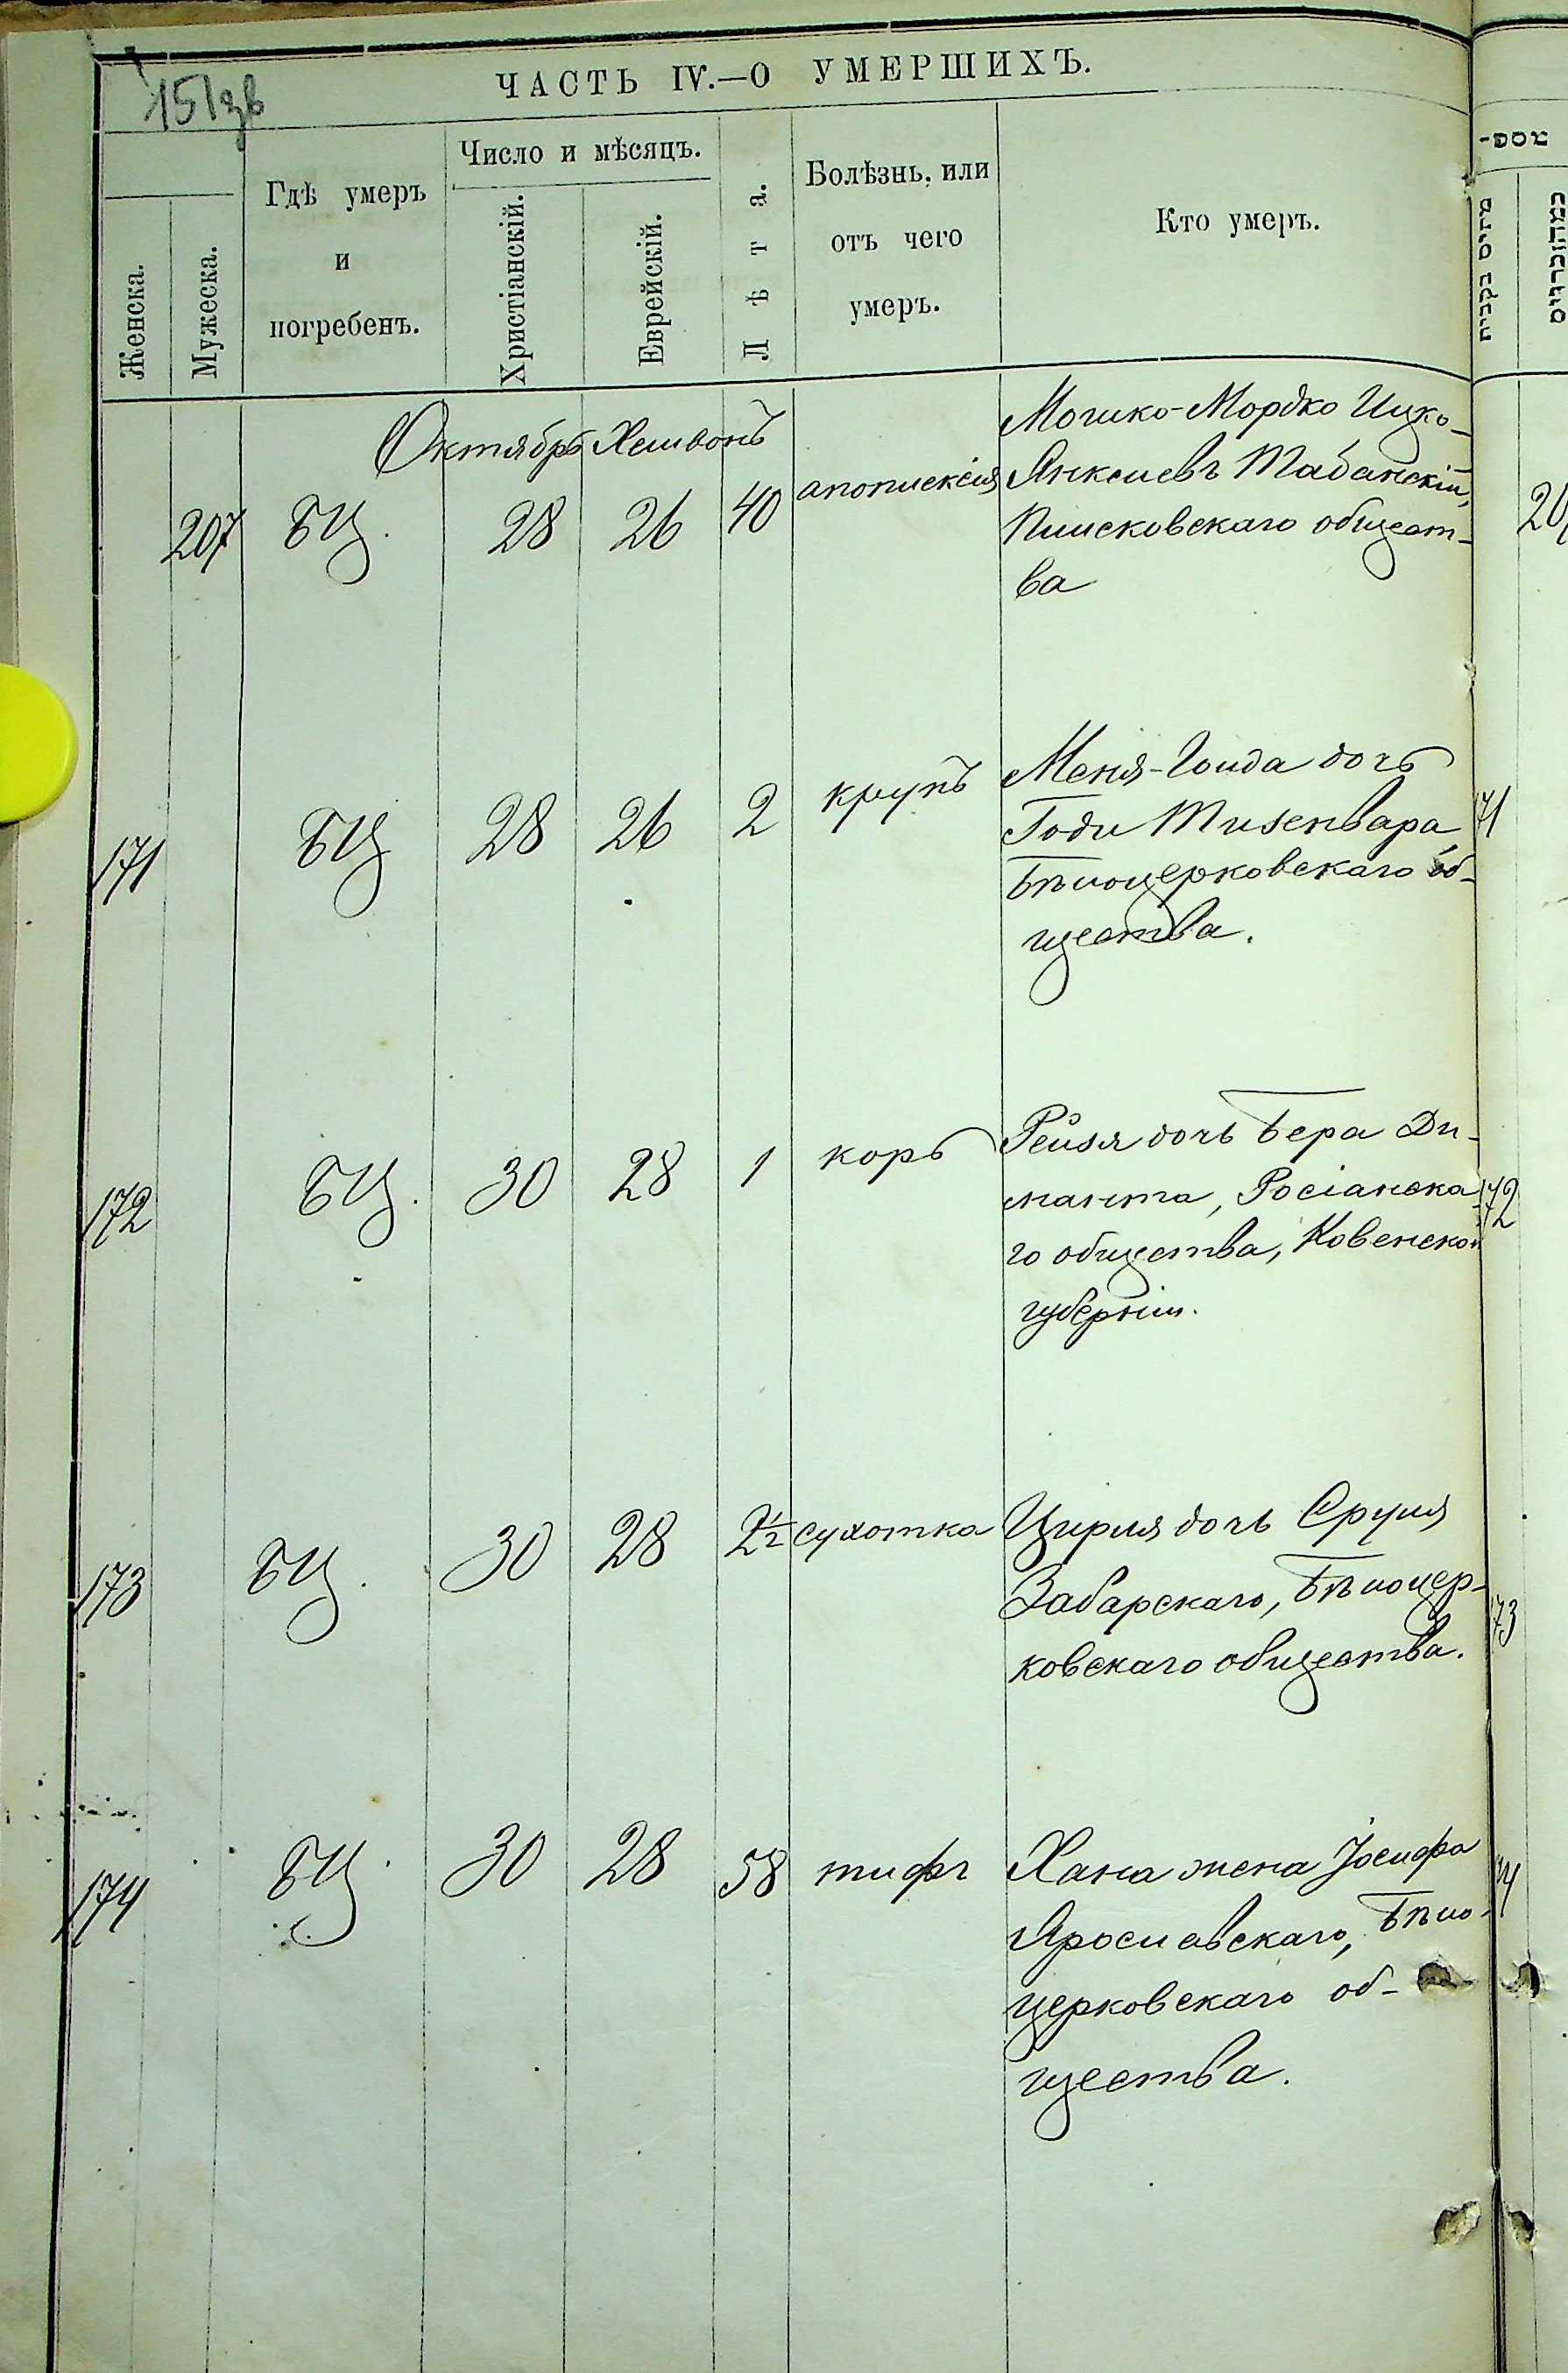 151зв
ЧАСТЬ IV.—О УМЕРШИХЪ.
Женска.
Мужеска.
Гдѣ умеръ
и
погребенъ.
Число и мѣсяцъ.
Христіанскій.
Еврейскій.
Лѣта.
Болѣзнь, или
отъ чего
умеръ.
Кто умеръ.
Октябрь Хешвонъ
207 БЦ. 28 26 40 апоплексія
Мошко-Мордко Ицко-
Янкелевъ Табанскій,
Плисковскаго общест-
ва
171 БЦ 28 26 2 крупъ
Меня-Гольда дочь
Годи Тизенвара,
Бѣлоцерковскаго об-
щества.
172 БЦ. 30 28 1 корь
Рейзя дочь Бера Ди-
манта, Росіанска-
го общества, Ковенской
губерніи.
173 БЦ. 30 28 2½ сухотка
Цирля дочь Сруля
Забарскаго, Бѣлоцер-
ковскаго общества.
174 БЦ. 30 28 58 тифъ
Хана жена Іосифа
Ярославскаго, Бѣло-
церковскаго об-
щества.
71
72
73
74